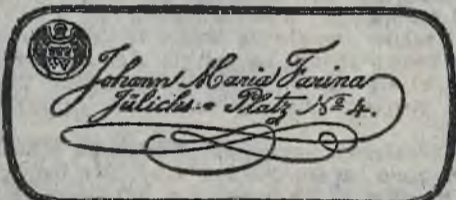 Johann Maria Farina
Jülichs-Platz № 4.